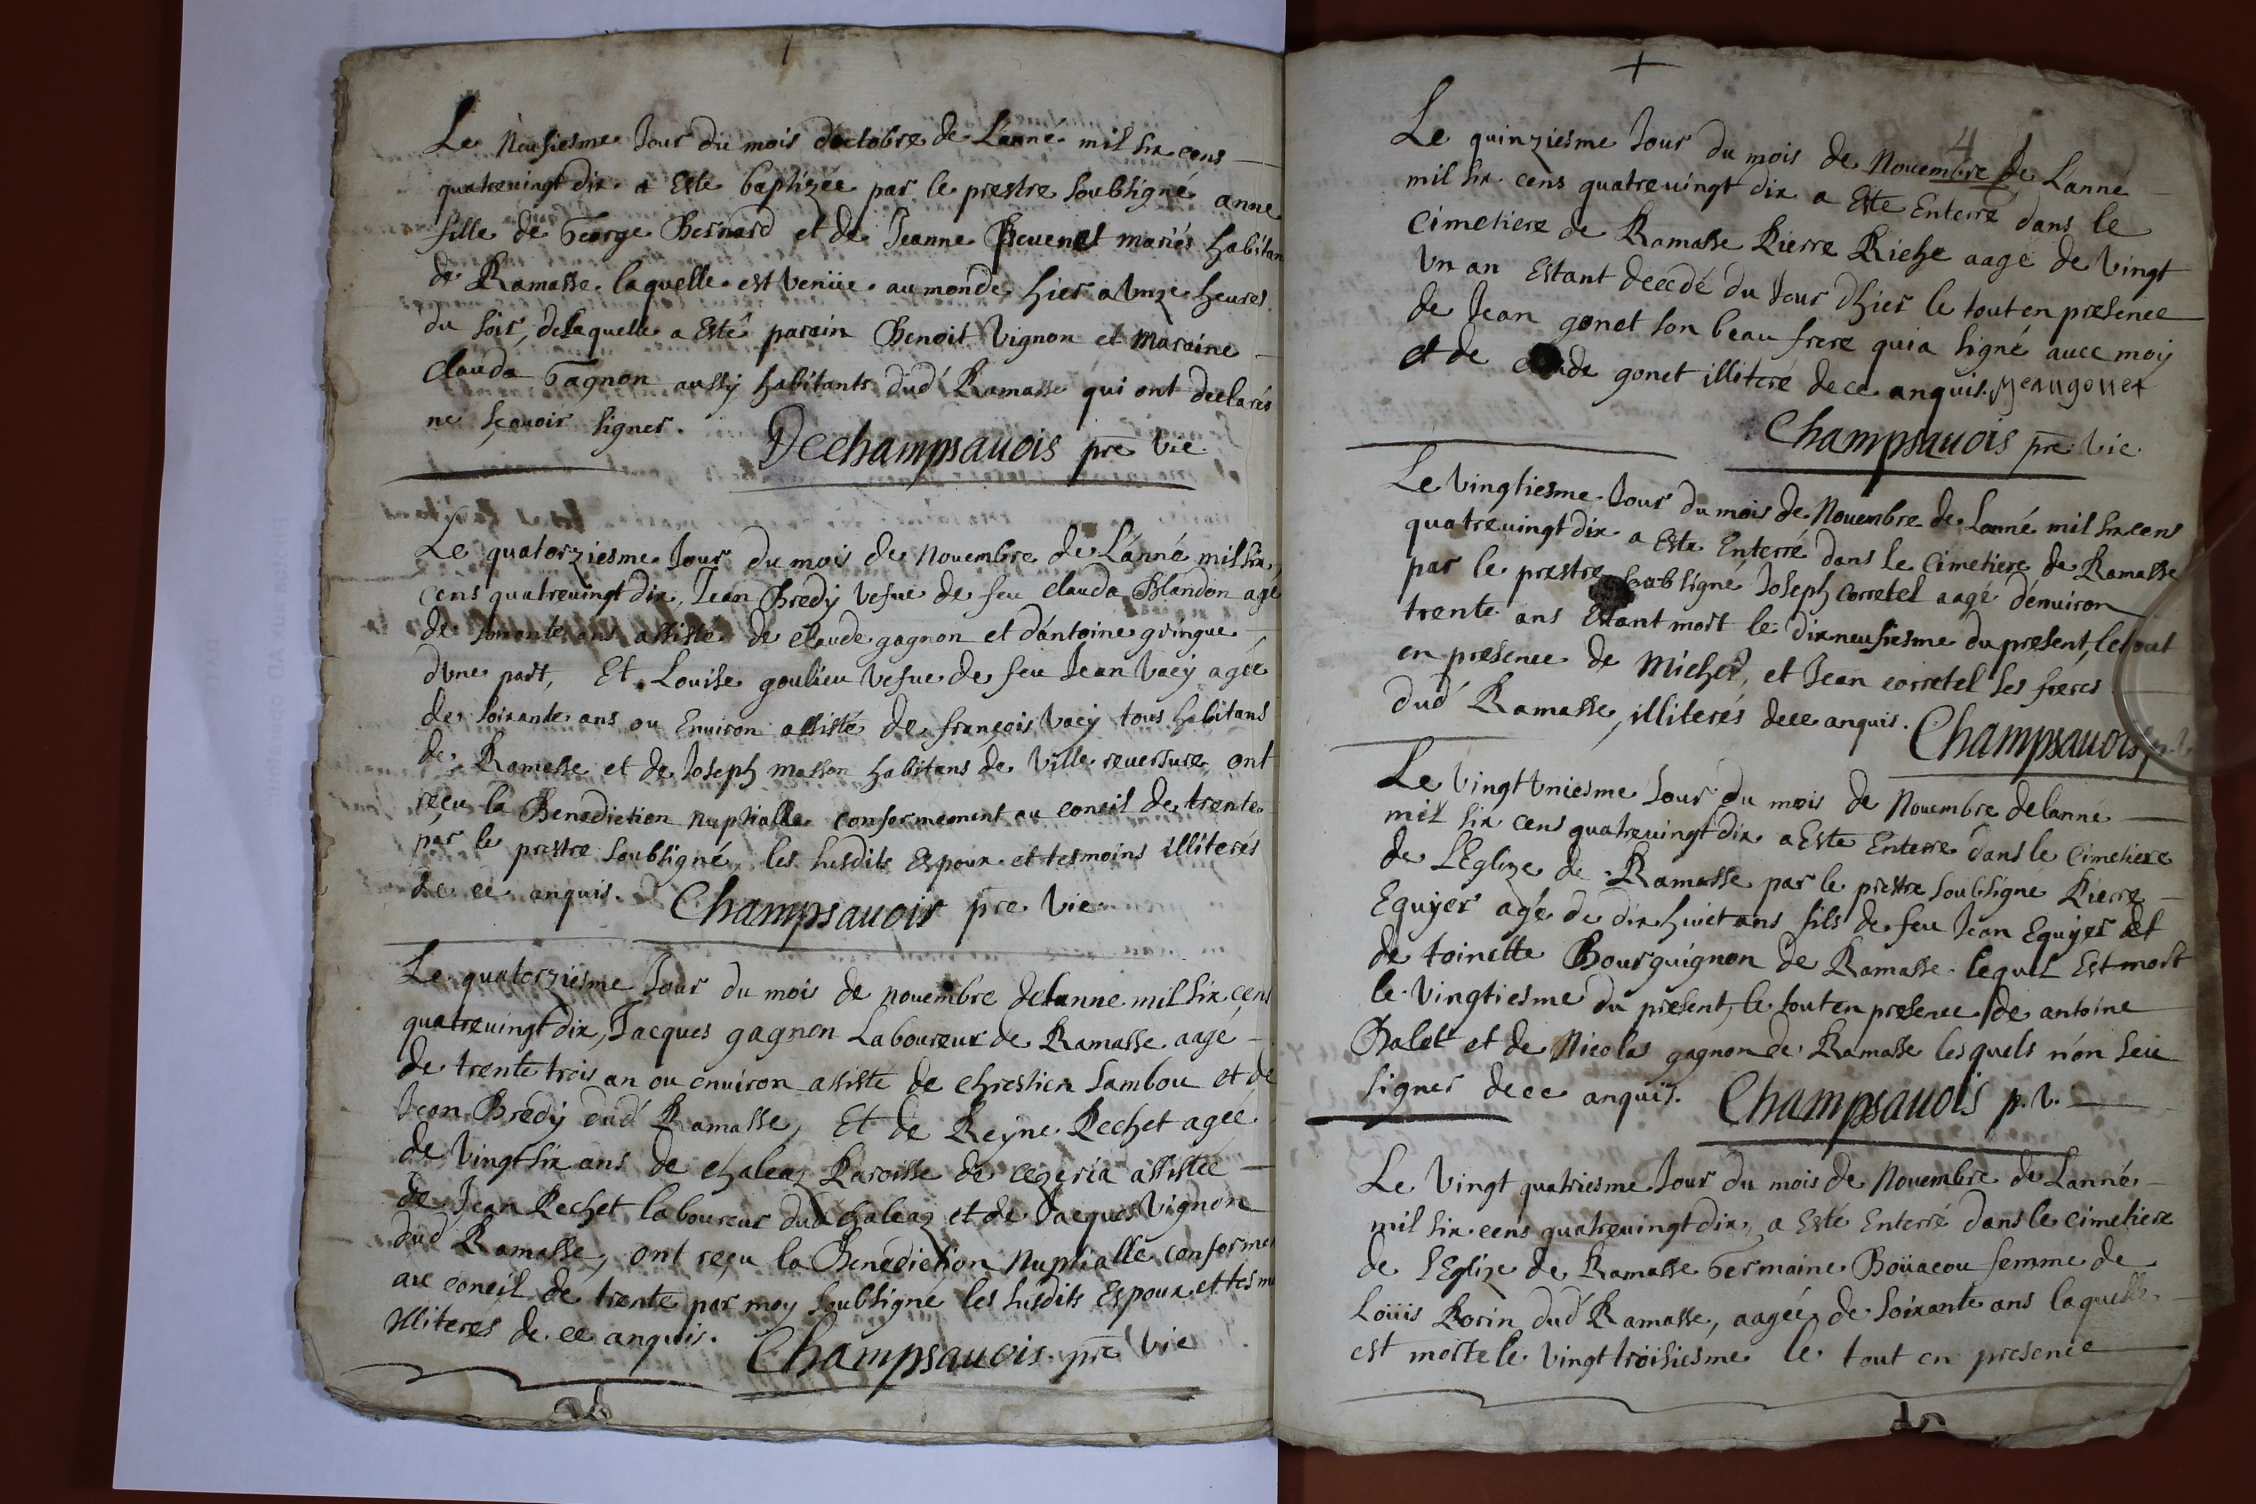 Le Neufiesme Jour du mois d'octobre de L'anne mil six cens
quatrevingt dix a Esté baptizée par le prestre soubsigné anne
fille de George Bernard et de Jeanne Bevenet mariés habitan
de Ramasse laquelle est venüe au monde hier a unze heures
du soir, delaquelle a Esté parain Benoit Vignon et Maraine
Clauda Gagnon aussy habitants dud' Ramasse qui ont declarés
ne sçavoir signer. Dechampsavois pre vic
Le quatorziesme Jour du mois de Novembre de L'anné mil six
cens quatrevingt dix, Jean Bredy vefue de feu Clauda Blandon agé
de ans assisté de Claude gagnon et d'antoine gringue
d'vne part, Et Louise goulieu vefue de feu Jean Vacy agée
de soixante ans ou Environ assisté de françois Vacy tous habitans
de Ramasse et de Joseph masson habitans de Ville reversure ont
reçu la Benediction nuptialle conformement au concil de trente
par le prestre soubsigné, les susdits Espoux et tesmoins illiterés
de ce anquis. Champsavois pre vic
Le quatorziesme Jour du mois de novembre delanne mil six cens
quatrevingt dix, Jacques gagnon Laboureur de Ramasse aagé
de trente trois an ou environ assisté de chrestien Sambou et de
Jean Bredy dud' Ramasse, Et de Reyne Pechet agée
de vingt six ans de chaleaz Paroisse de cegeria assistée
de Jean Pechet laboureur dud chaleaz et de Jacques Vignon
dud Ramasse, ont reçu la Benediction Nuptialle conforme
au concil de trente par moy soubsigné les susdits Espoux et tesm
illiteres de ce anquis. Champsavois pre vic
+
4
Le quinziesme Jour du mois de Novembre de L'anné
mil six cens quatrevingt dix a Este Enterré dans le
Cimetiere de Ramasse Pierre Piche aagé de vingt
vn an Estant decedé du Jour d'hier le tout en presence
de Jean gonet son beau frere qui a signé avec moy
et de Claude gonet illiteré de ce anquis. Jeangonet
Champsavois pre vic
Le vingtiesme Jour du mois de Novembre de Lanné mil six cens
quatrevingt dix a Esté Enterré dans le Cimetiere de Ramasse
par le prestre soubsigné Joseph Corretel aagé d'environ
trente ans Estant mort le dixneufiesme du present, le tout
en presence de Michel, et Jean corretel ses freres
dud' Ramasse, illiterés de ce anquis. Champsavois p.v.
Le vingt vniesme Jour du mois de Novembre delanné
mil six cens quatrevingt dix a Esté Enterré dans le Cimetiere
de L'Eglize de Ramasse par le prestre soubsigné Pierre
Eguyer agé de dix huict ans fils de feu Jean Eguyer et
de toinette Bourguignon de Ramasse lequel Est mort
le vingtiesme du present, le tout en presence de antoine
Balet et de Nicolas gagnon de Ramasse lesquels n'on seu
signer de ce anquis. Champsavois p.v.
Le vingt quatriesme Jour du mois de Novembre de L'anné
mil six cens quatrevingt dix, a Esté Enterré dans le cimetiere
de l'Eglize de Ramasse Germaine Boüacou femme de
Loüis Porin dud' Ramasse, aagée de soixante ans laquelle
est morte le vingt troisiesme le tout en presence